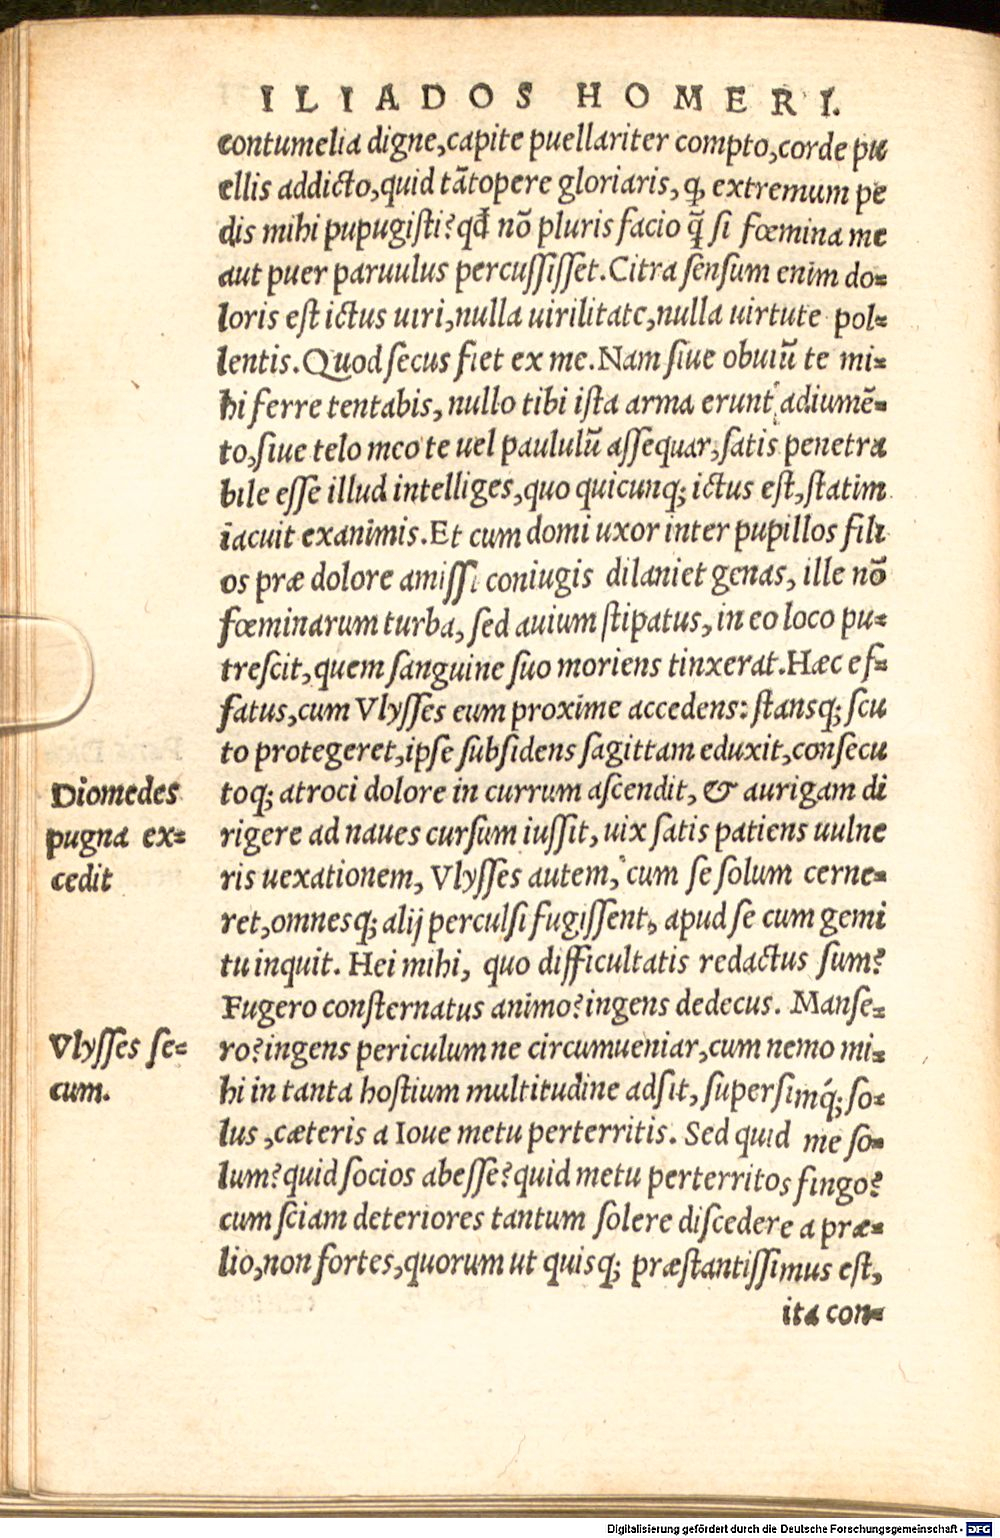 ILIADOS HOMERI.
contumelia digne, capite puellariter compto, corde pu
ellis addicto, quid tãtopere gloriaris, ꝙ extremum pe
dis mihi pupugisti? qđ nõ pluris facio q̃ si fœmina me
aut puer paruulus percussisset. Citra sensum enim do-
loris est ictus uiri, nulla uirilitate, nulla uirtute pol-
lentis. Quod secus fiet ex me. Nam siue obuiũ te mi-
hi ferre tentabis, nullo tibi ista arma erunt adiumẽ-
to, siue telo meo te uel paululũ assequar, satis penetra
bile esse illud intelliges, quo quicunq; ictus est, statim
iacuit exanimis. Et cum domi uxor inter pupillos fili
os præ dolore amissi coniugis dilaniet genas, ille nõ
fœminarum turba, sed auium stipatus, in eo loco pu-
trescit, quem sanguine suo moriens tinxerat. Hæc ef-
fatus, cum Vlysses eum proxime accedens: stansq; scu
to protegeret, ipse subsidens sagittam eduxit, consecu
Diomedes
pugna ex-
cedit
toq; atroci dolore in currum ascendit, & aurigam di
rigere ad naues cursum iussit, uix satis patiens uulne
ris uexationem, Vlysses autem, cum se solum cerne-
ret, omnesq; alij perculsi fugissent, apud se cum gemi
tu inquit. Hei mihi, quo difficultatis redactus sum?
Fugero consternatus animo? ingens dedecus. Manse-
Vlysses se-
cum.
ro? ingens periculum ne circumueniar, cum nemo mi-
hi in tanta hostium multitudine adsit, supersimq́; so-
lus, cæteris a Ioue metu perterritis. Sed quid me so-
lum? quid socios abesse? quid metu perterritos fingo?
cum sciam deteriores tantum solere discedere a præ-
lio, non fortes, quorum ut quisq; præstantissimus est,
ita con-
Digitalisierung gefördert durch die Deutsche Forschungsgemeinschaft - DFG